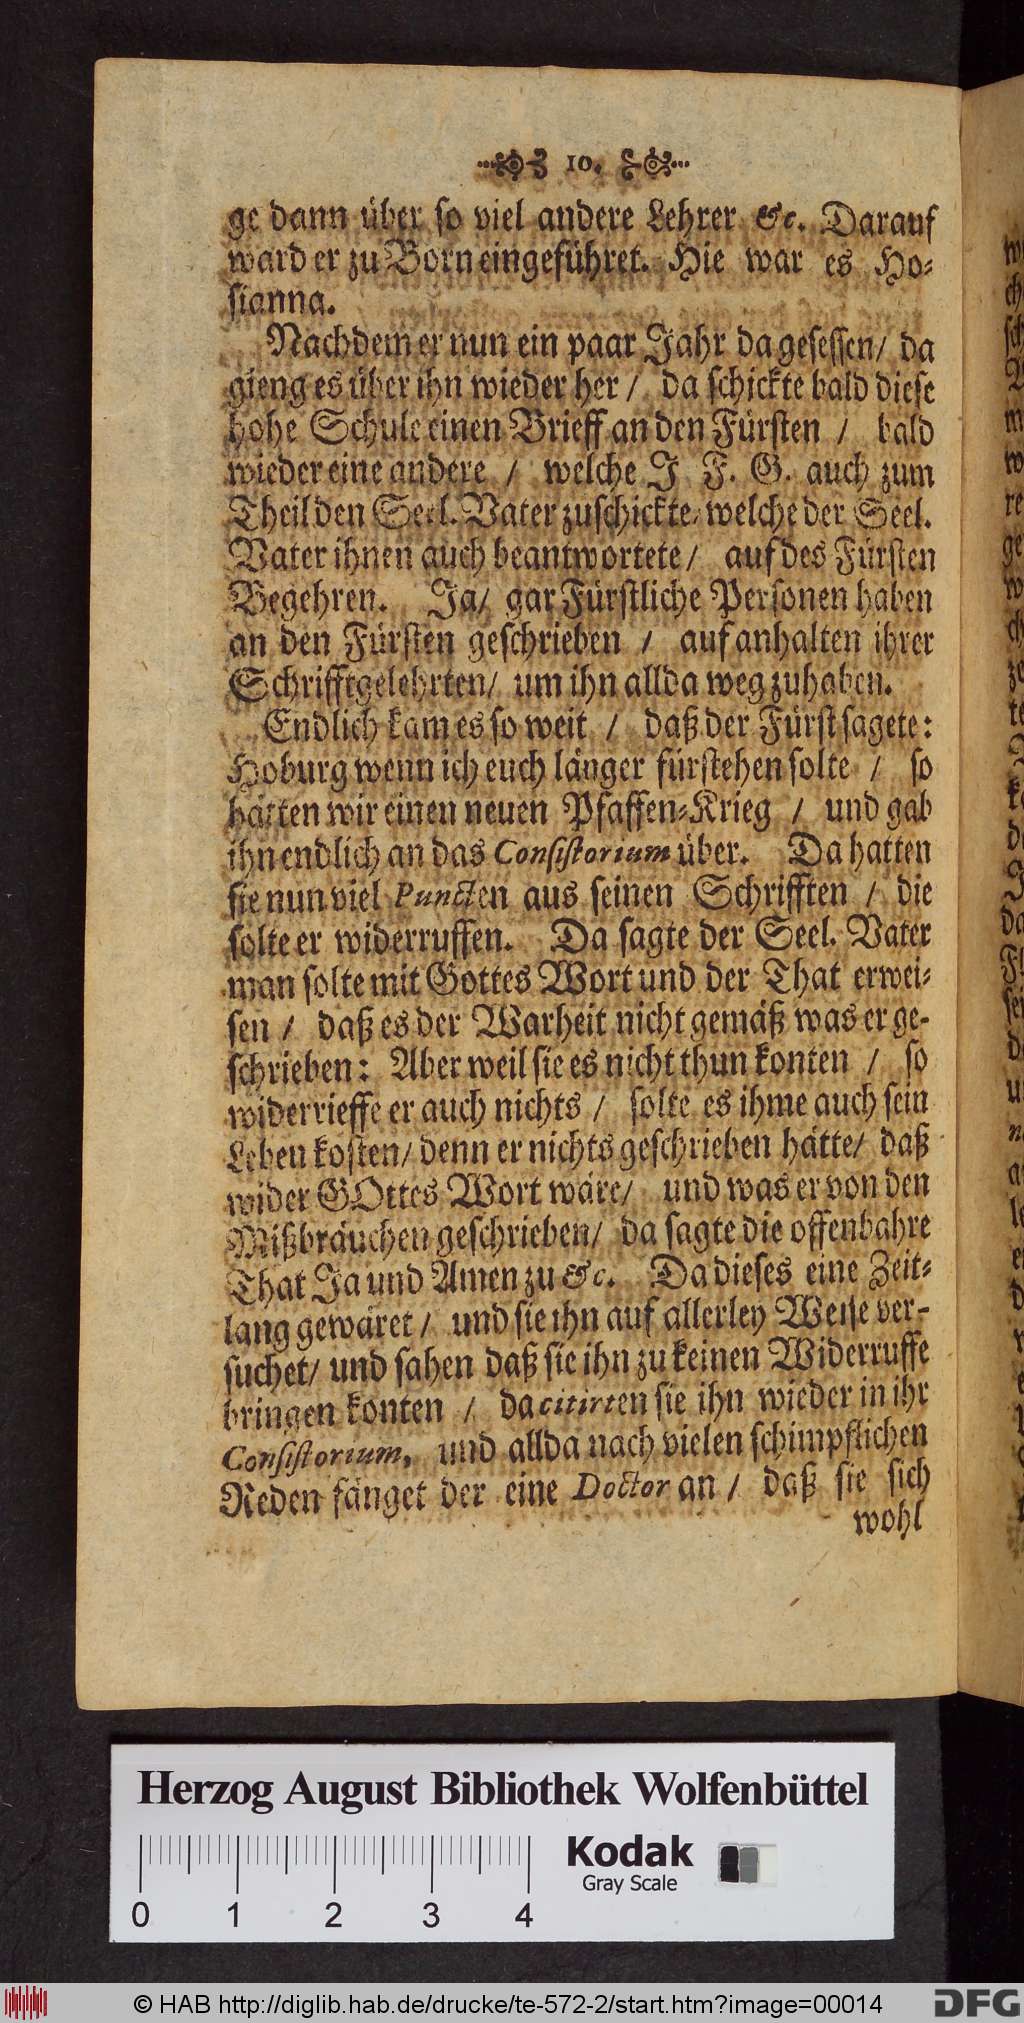 10.
ge dann über so viel andere Lehrer &c. Darauf
ward er zu Born eingeführet. Hie war es Ho-
sianna.
Nachdem er nun ein paar Jahr da gesessen/ da
gieng es über ihn wieder her / da schickte bald diese
hohe Schule einen Brieff an den Fürsten / bald
wieder eine andere / welche J F. G. auch zum
Theil den Seel. Vater zuschickte, welche der Seel.
Vater ihnen auch beantwortete/ auf des Fürsten
Begehren. Ja/ gar Fürstliche Personen haben
an den Fürsten geschrieben / auf anhalten ihrer
Schrifftgelehrten/ um ihn allda weg zuhaben.
Endlich kam es so weit / daß der Fürst sagete:
Hoburg wenn ich euch länger fürstehen solte / so
hätten wir einen neuen Pfaffen-Krieg / und gab
ihn endlich an das Consistorium über. Da hatten
sie nun viel Puncten aus seinen Schrifften / die
solte er widerruffen. Da sagte der Seel. Vater
man solte mit Gottes Wort und der That erwei-
sen / daß es der Warheit nicht gemäß was er ge-
schrieben: Aber weil sie es nicht thun konten / so
widerrieffe er auch nichts / solte es ihme auch sein
Leben kosten/ denn er nichts geschrieben hätte/ daß
wider GOttes Wort wäre/ und was er von den
Mißbräuchen geschrieben/ da sagte die offenbahre
That Ja und Amen zu &c. Da dieses eine Zeit-
lang gewäret / und sie ihn auf allerley Weise ver-
suchet/ und sahen daß sie ihn zu keinen Widerruffe
bringen konten / da citirten sie ihn wieder in ihr
Consistorium, und allda nach vielen schimpflichen
Reden fänget der eine Doctor an / daß sie sich
wohl
Herzog August Bibliothek Wolfenbüttel
Kodak
Gray Scale
0 1 2 3 4
© HAB http://diglib.hab.de/drucke/te-572-2/start.htm?image=00014
DFG